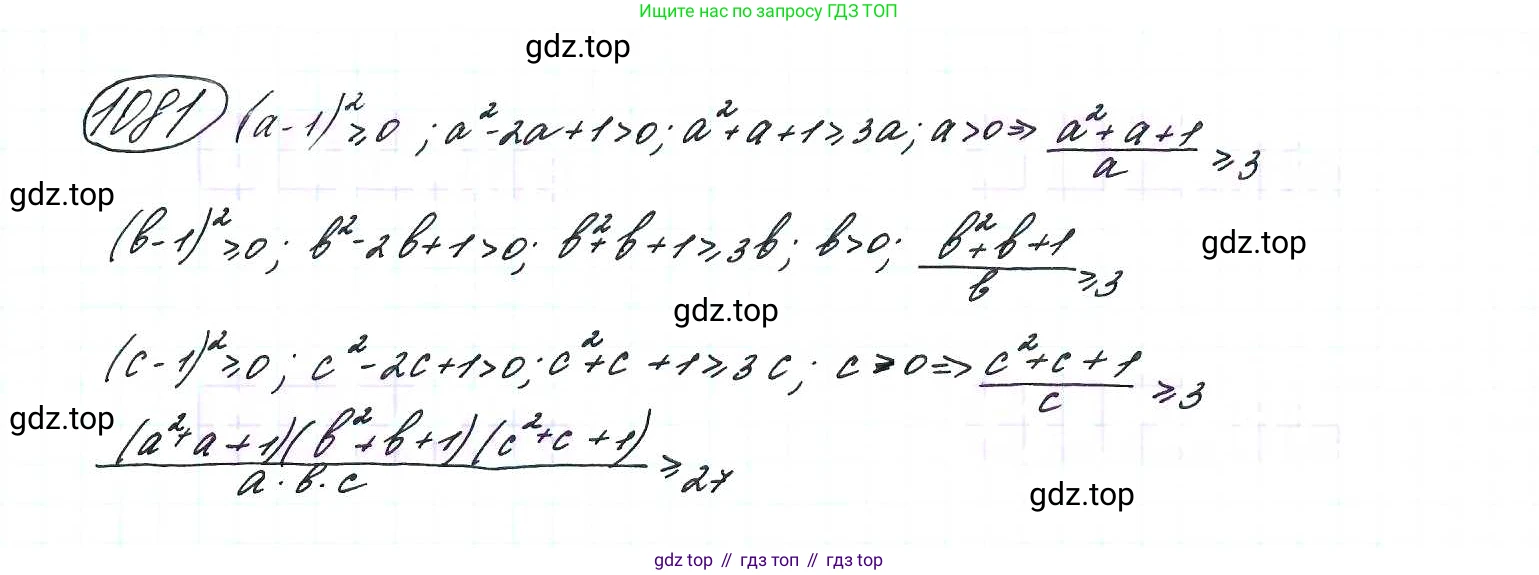 Ищите нас по запросу ГДЗ ТОП
gdz.top
1081 (a-1)² ≥ 0 ; a²-2a+1>0; a²+a+1≥3a; a>0⇒ (a²+a+1)/a ≥3
gdz.top
(b-1)²≥0; b²-2b+1>0; b²+b+1≥3b; b>0; (b²+b+1)/b ≥3
gdz.top
gdz.top
(c-1)²≥0; c²-2c+1>0; c²+c+1≥3c; c>0⇒ (c²+c+1)/c ≥3
gdz.top
(a²+a+1)(b²+b+1)(c²+c+1)/(a·b·c) ≥27
gdz.top
gdz top // гдз топ // гдз top